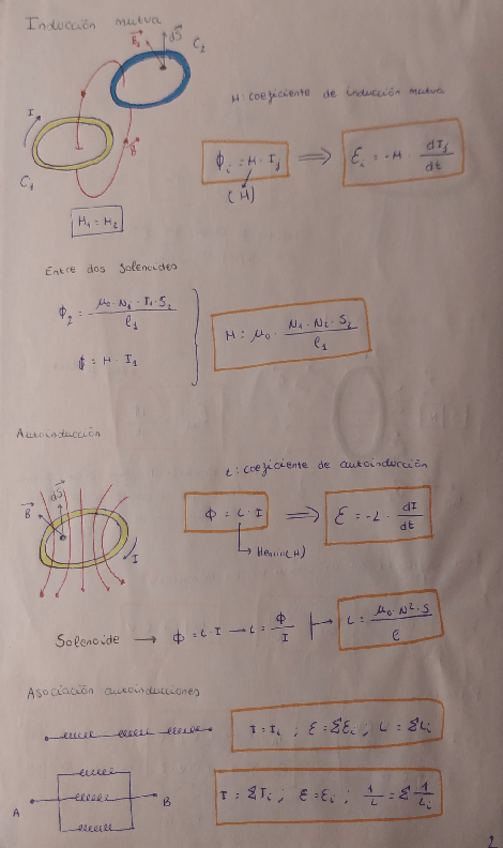 Inducción mutua
B₁ dS C₂
I
B
C₁
M: coeficiente de inducción mutua
ϕᵢ = M · Iⱼ ⟹ Ɛᵢ = -M · dIⱼ/dt
(H)
M₁ = M₂
Entre dos solenoides
ϕ₂ = μ₀ · N₁ · I₁ · S₂ / ℓ₁
ϕ = M · I₁
M: μ₀ · N₁ · N₂ · S₂ / ℓ₁
Autoinducción
L: coeficiente de autoinducción
B dS I
ϕ = L · I ⟹ Ɛ = -L · dI/dt
Henrio (H)
Solenoide → ϕ = L · I → L = ϕ/I → L = μ₀ · N² · S / ℓ
Asociación autoinducciones
I = Iᵢ ; Ɛ = ΣƐᵢ ; L = ΣLᵢ
A B
I = ΣIᵢ ; Ɛ = Ɛᵢ ; 1/L = Σ 1/Lᵢ